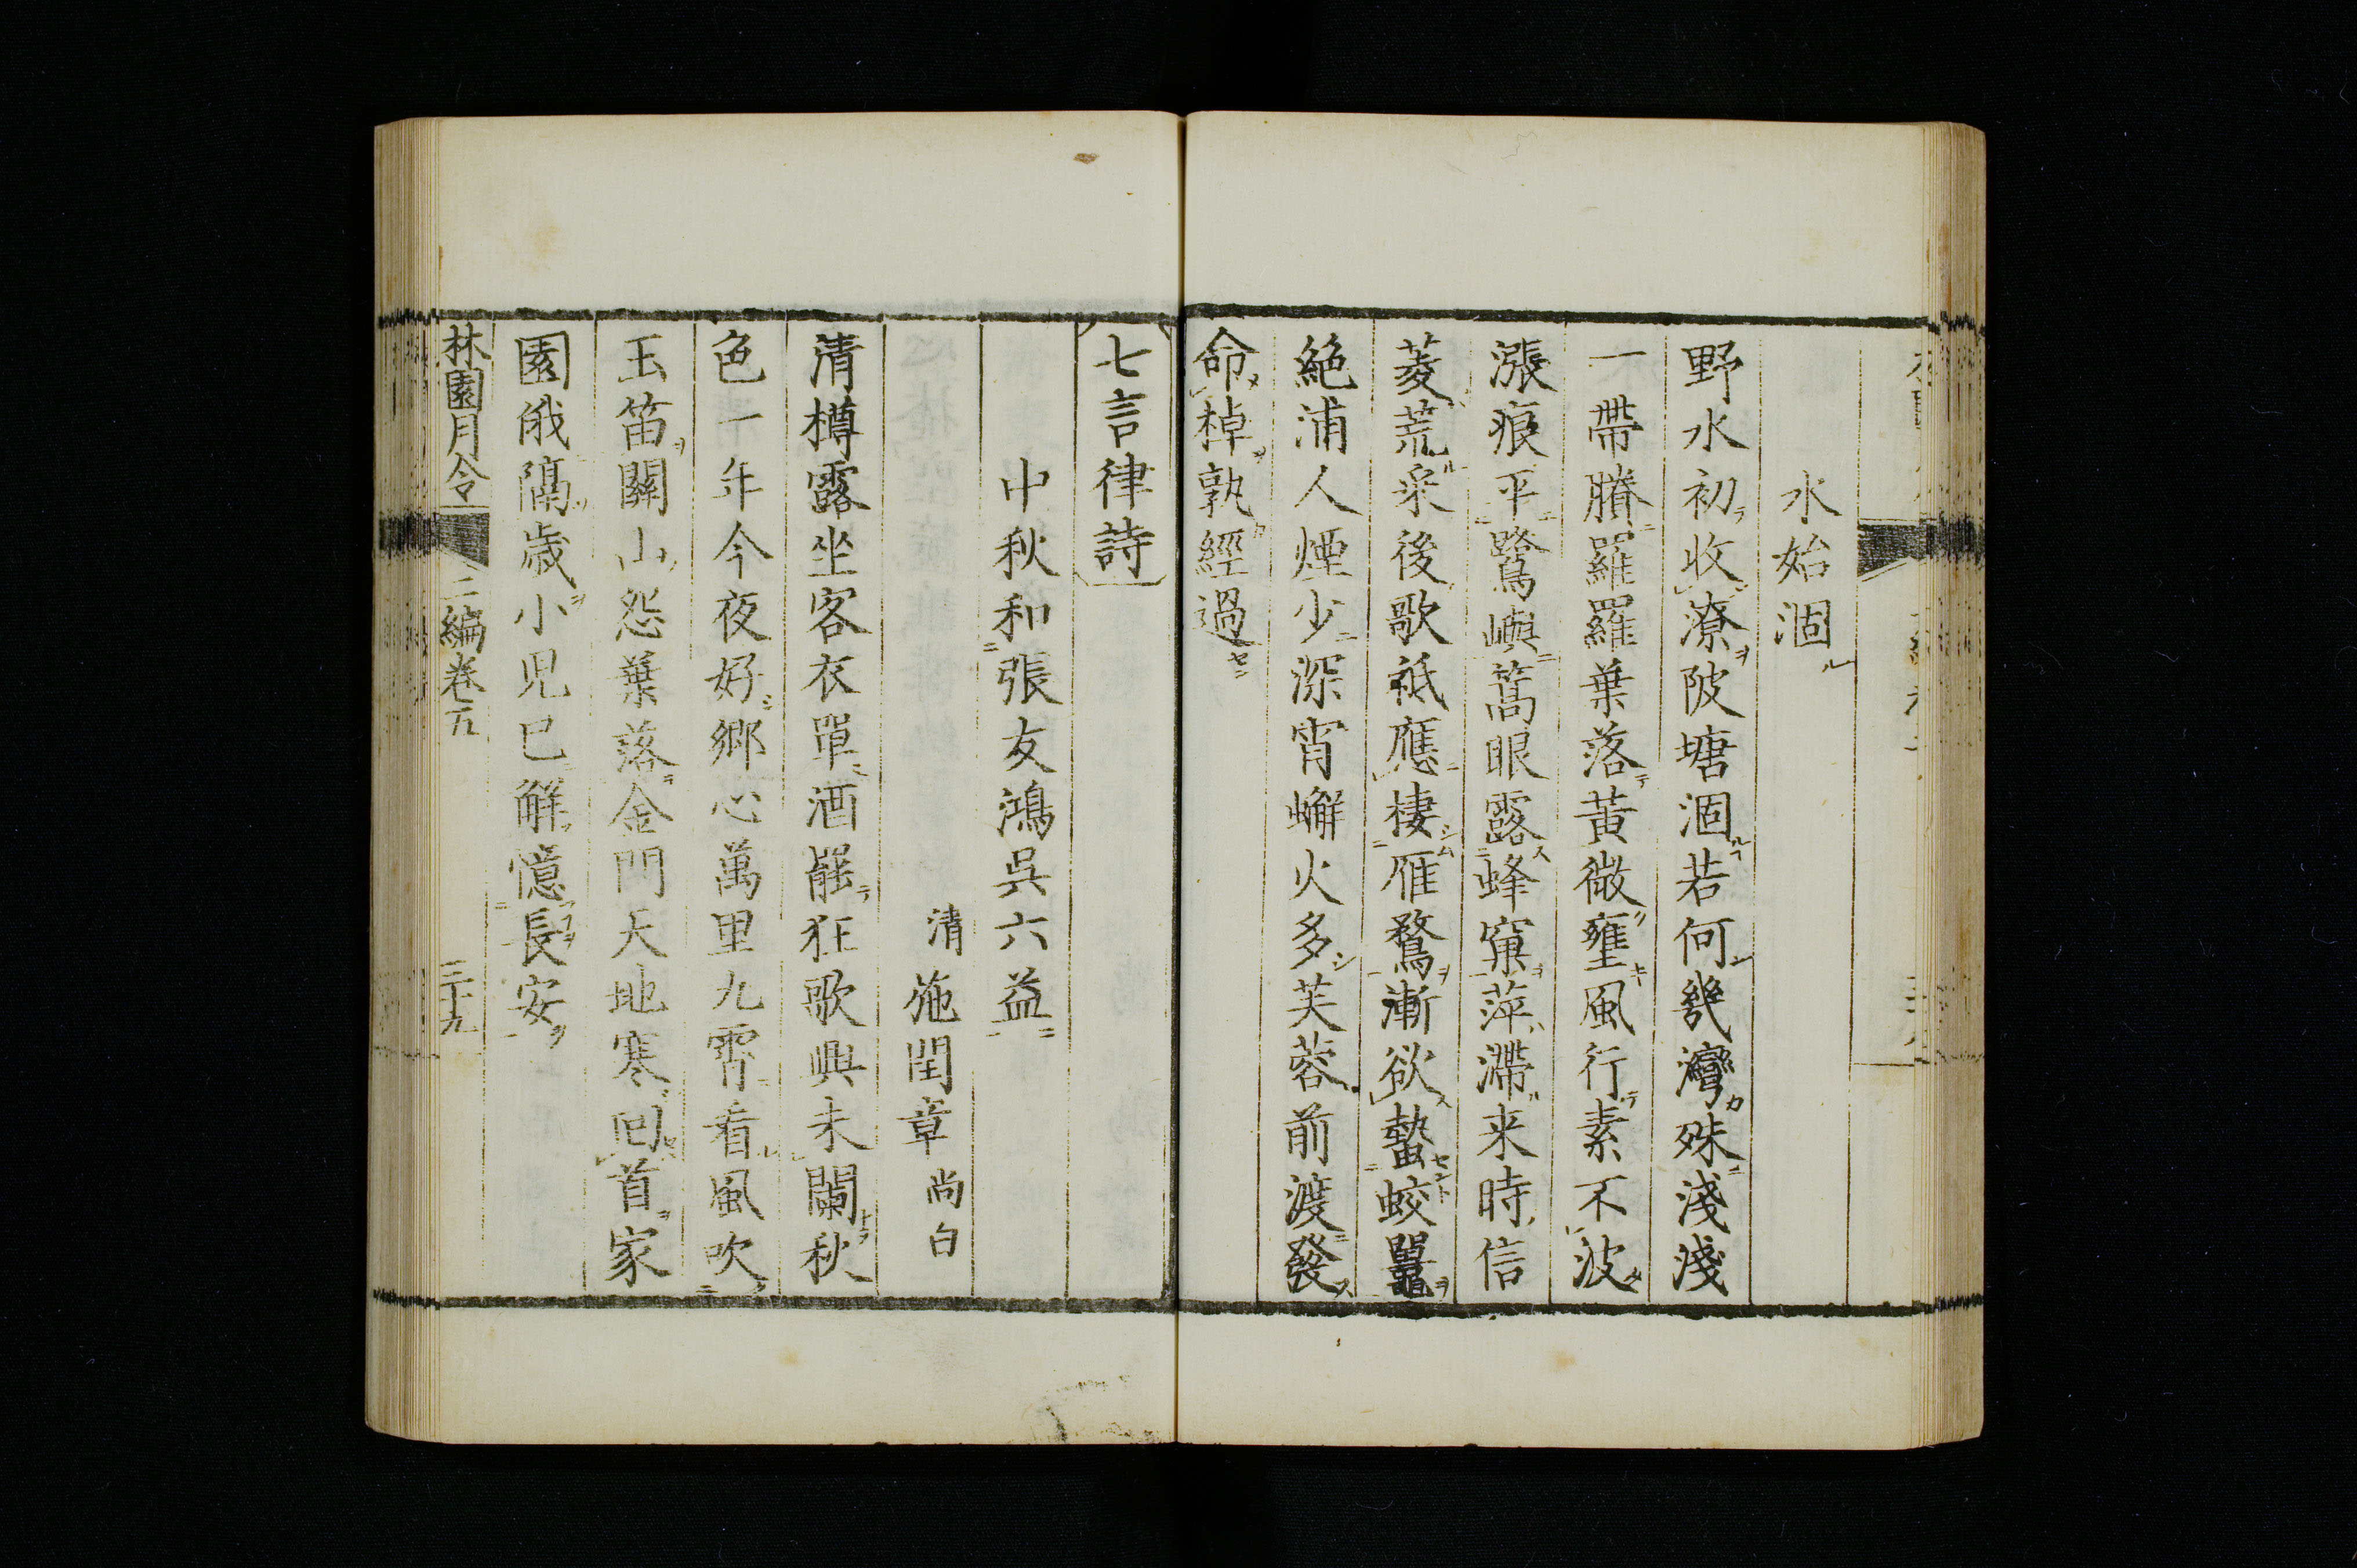 水始涸
野水初收潦陂塘涸若何幾灣殊淺淺
一帶賸羅羅葉落黃微壅風行素不波
漲痕平鷺嶼篙眼露蜂窠萍滯来時信
菱荒采後歌祗應棲雁鶩漸欲蟄蛟鼉
絶浦人煙少深宵蠏火多芙蓉前渡發
命棹孰經過
七言律詩
中秋和張友鴻呉六益
清 施閏章 尚白
清樽露坐客衣單酒罷狂歌興未闌秋
色一年今夜好郷心萬里九霄看風吹
玉笛關山怨葉落金門天地寒回首家
園俄隔歳小児已解憶長安
林園月令 二編卷五 三十九